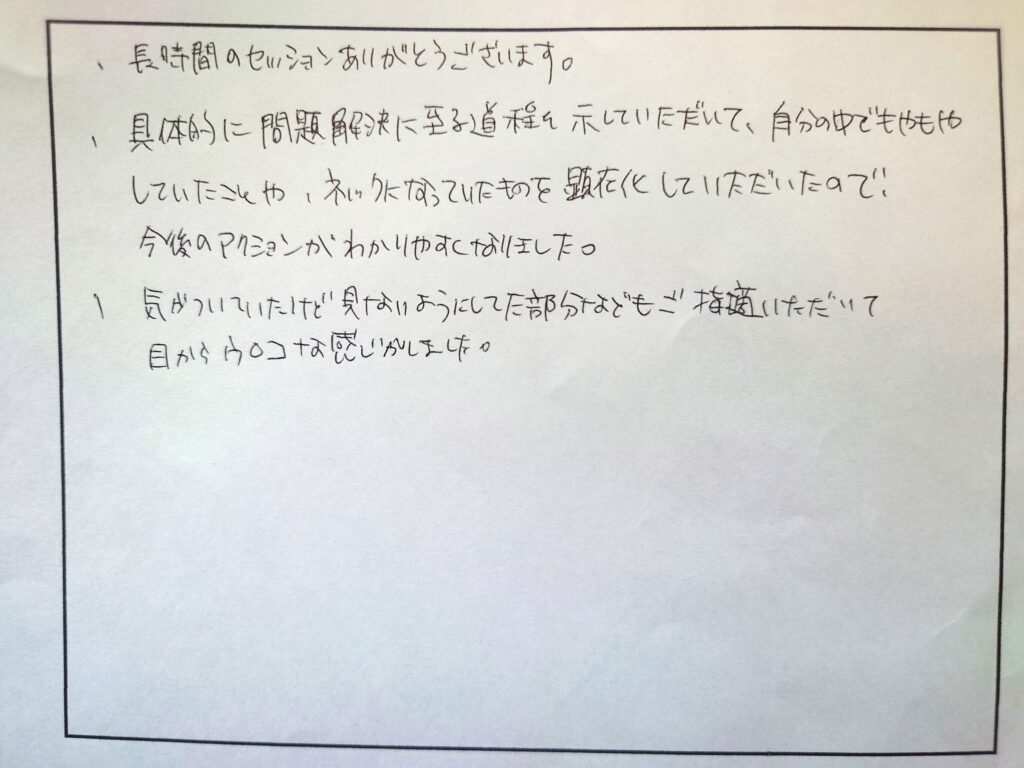 、長時間のセッションありがとうございます。
、具体的に問題解決に至る道程を示していただいて、自分の中でもやもや
していたことや、ネックになっていたものを顕在化していただいたので、
今後のアクションがわかりやすくなりました。
、気がついていたけど見ないようにしてた部分などもご指摘いただいて
目からウロコな感じがしました。